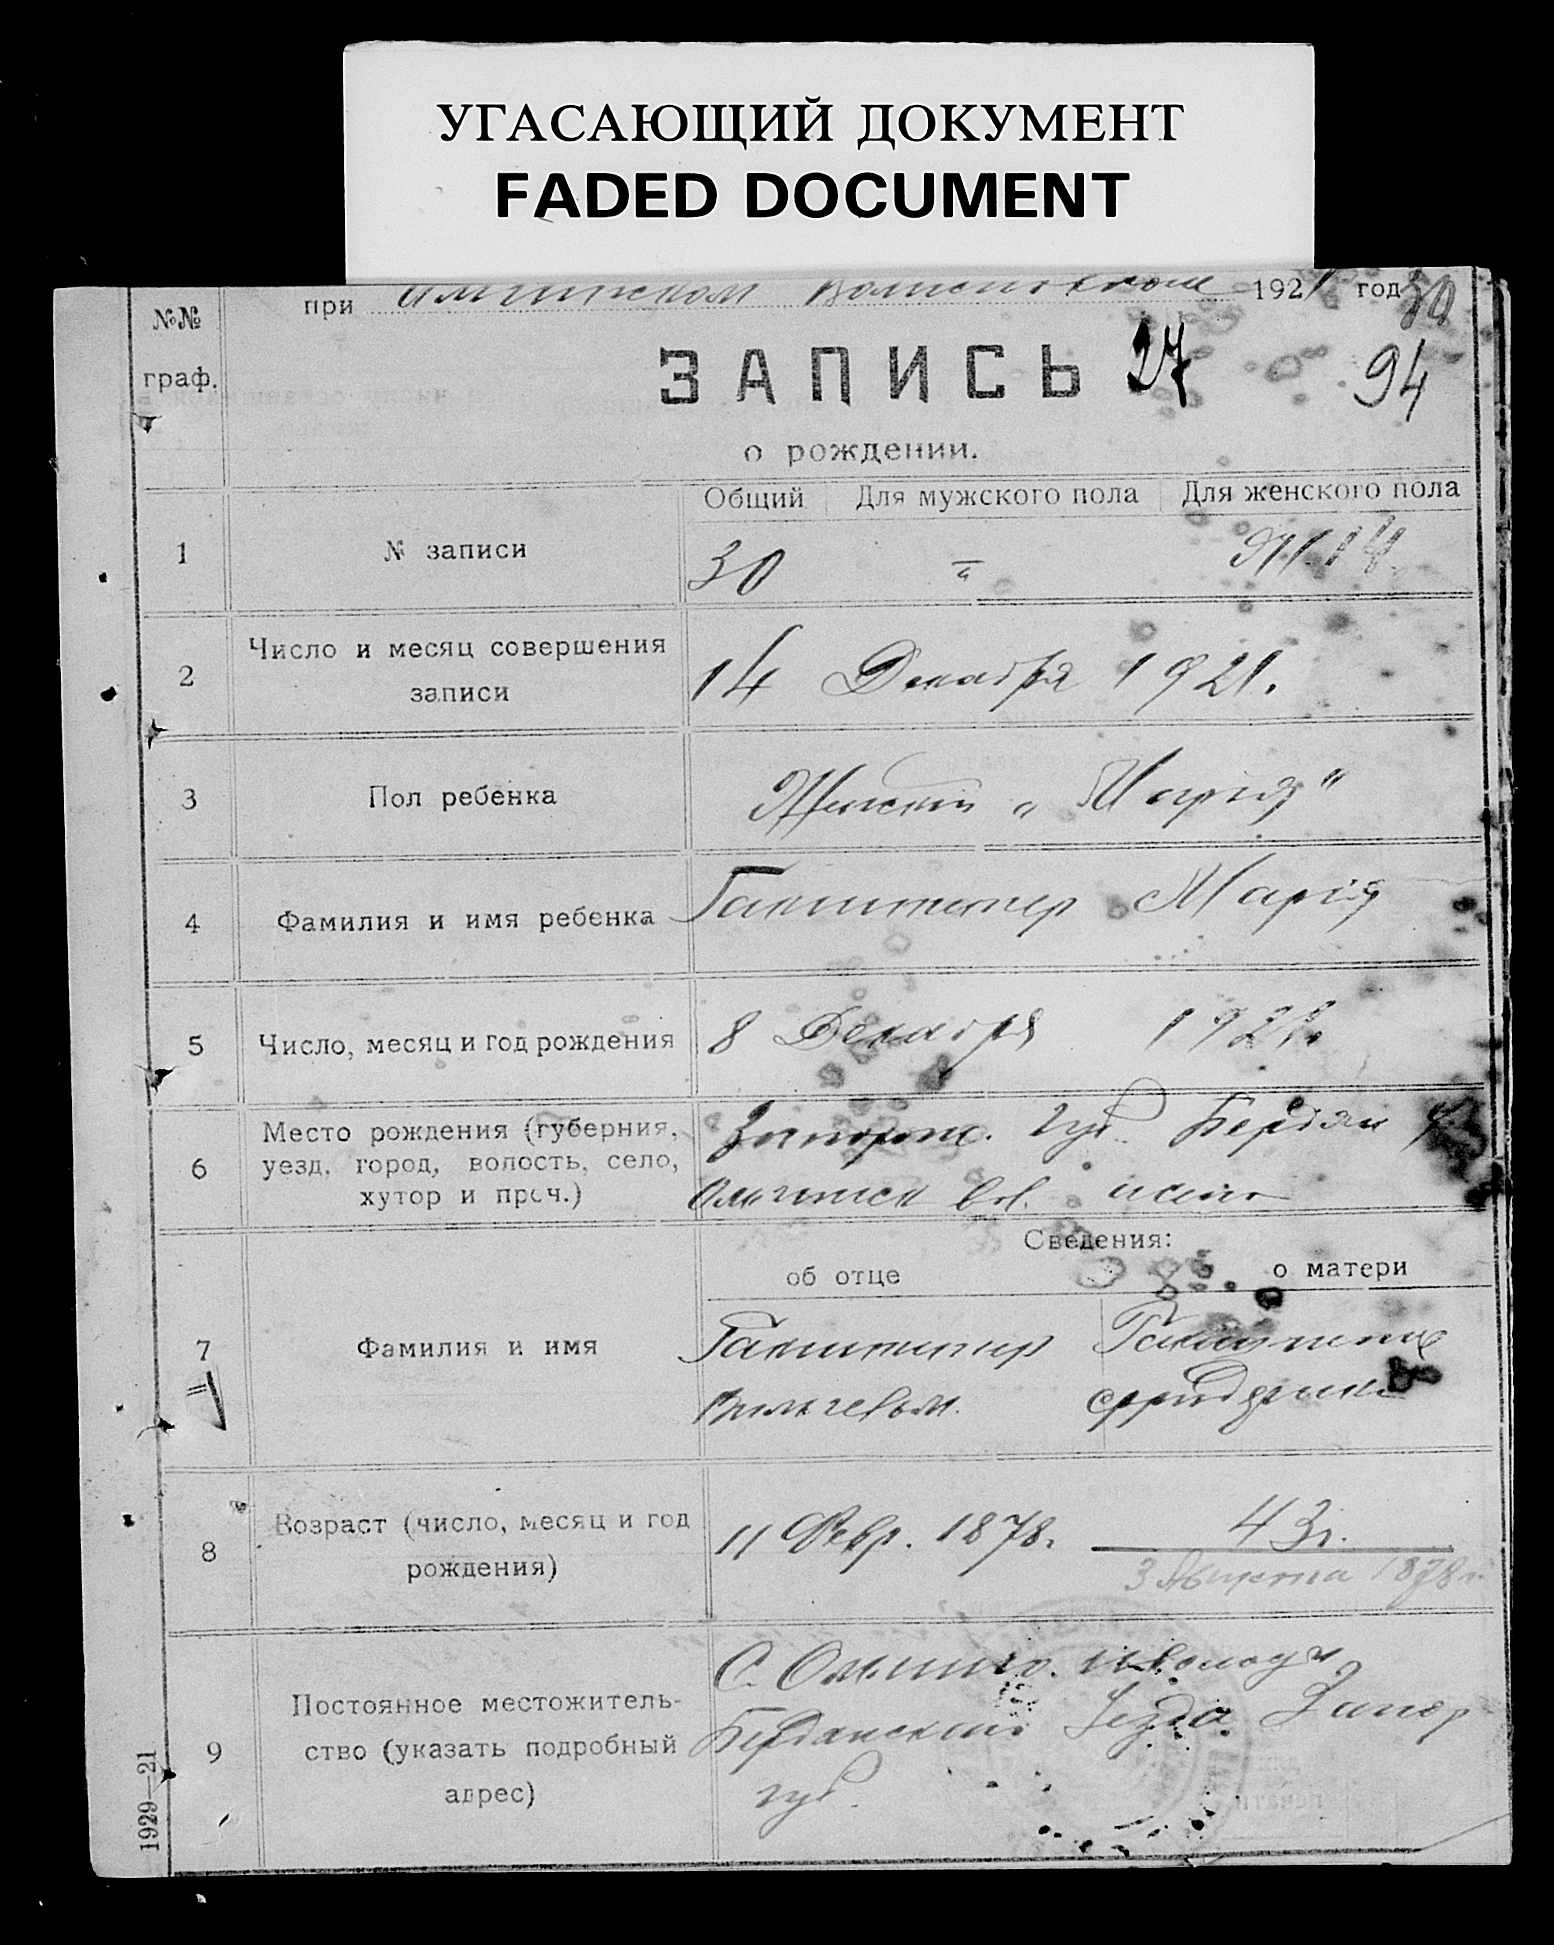 УГАСАЮЩИЙ ДОКУМЕНТ
FADED DOCUMENT
№№ граф.
при 1921 год 30
ЗАПИСЬ 27 94
о рождении.
Общий Для мужского пола Для женского пола
1 № записи 30 " 14
2 Число и месяц совершения записи 14 Декабря 1921.
3 Пол ребенка Женский „Мария"
4 Фамилия и имя ребенка Мария
5 Число, месяц и год рождения 8 Декабря 1921.
6 Место рождения (губерния, уезд, город, волость, село, хутор и проч.) Запорож. губ. Бердян у.
вол.
Сведения:
об отце о матери
7 Фамилия и имя
Вильгельм.
8 Возраст (число, месяц и год рождения) 11 Февр. 1878. 43 г.
3 Августа 1878 г.
9 Постоянное местожитель-
ство (указать подробный
адрес)
С.
Бердянского Уезда Запор
губ.
1929—21